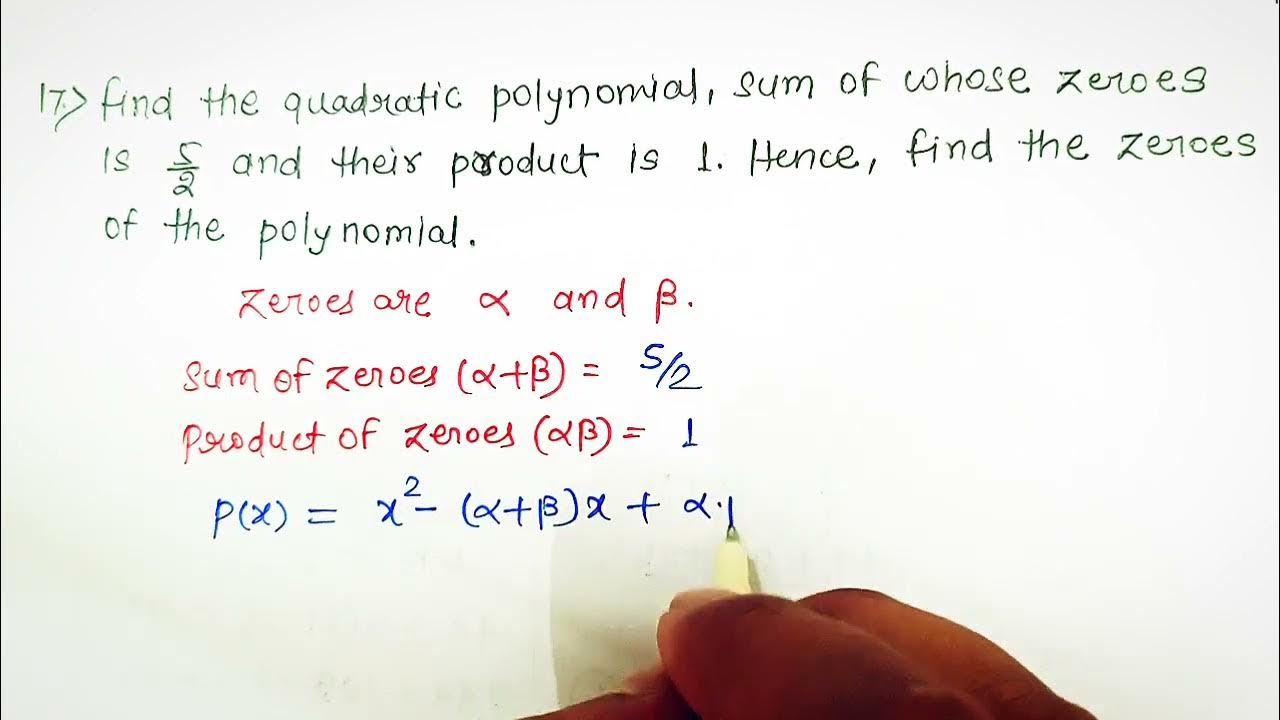 17.> find the quadratic polynomial, sum of whose zeroes
is 5/2 and their product is 1. Hence, find the zeroes
of the polynomial.
Zeroes are α and β.
Sum of zeroes (α+β) = 5/2
Product of zeroes (αβ) = 1
P(x) = x² - (α+β)x + α.